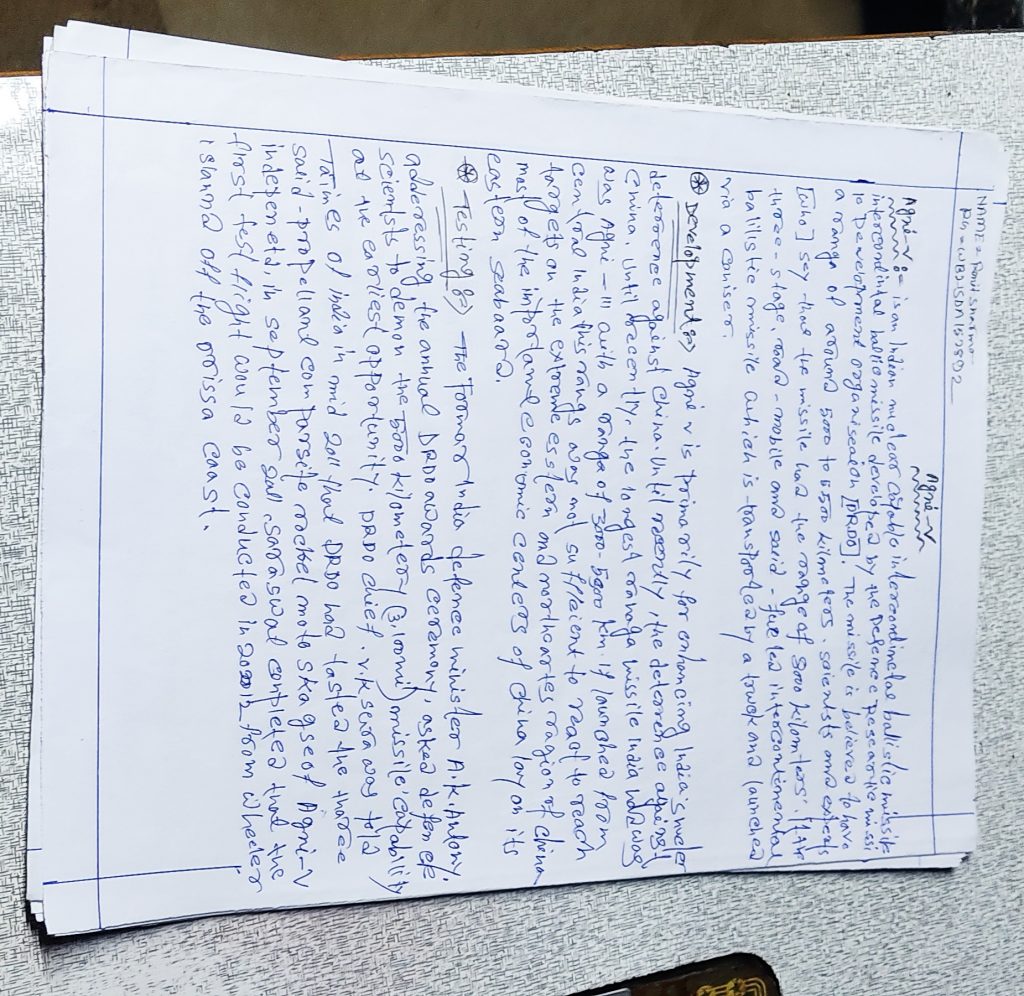 NAME =
Agni-V
Agni-V := is an Indian nuclear capable intercondimetal ballistic missile
intercondinal ballic missile developed by the Defence Researtic missi
le Development organisation [DRDO]. The missile is believed to have
a range of around 5000 to 5500 kilometers. scienlsts and experts
[who] sey that the missile had the range of 8000 kilomters.
three-stage, road-mobile and solid-fueled intercontimental
ballistic missile which is transported by a truck and launched
via a coniser.
Development :=> Agni v is primarily for enhancing India's
deterrence against China. Until recently, the deterrence against
China. Until recently, the longest range missile India had was
was Agni-III with a range of 3000-5000 km. if launched from
central India this range was not sufficient to react to reach
targets on the extreme esstern and region of China
most of the economic centers of China lay on its
eastern seabaard.
Testing :=> The Former India defence minister A.K. Antony.
adderessing the annual DRDO awards ceremony, asked defence
scients to demon the 5000 kilometery missile, capability
at the earliest opportunity. DRDO chief. v.k told
Times of India in mid 2011 that DRDO had tasted the tharee
solid-propellant rocket of Agni-V
in september 2011. saraswal conpleted that the
first test flight would be conducted in from Wheeler
island off the orissa coast.